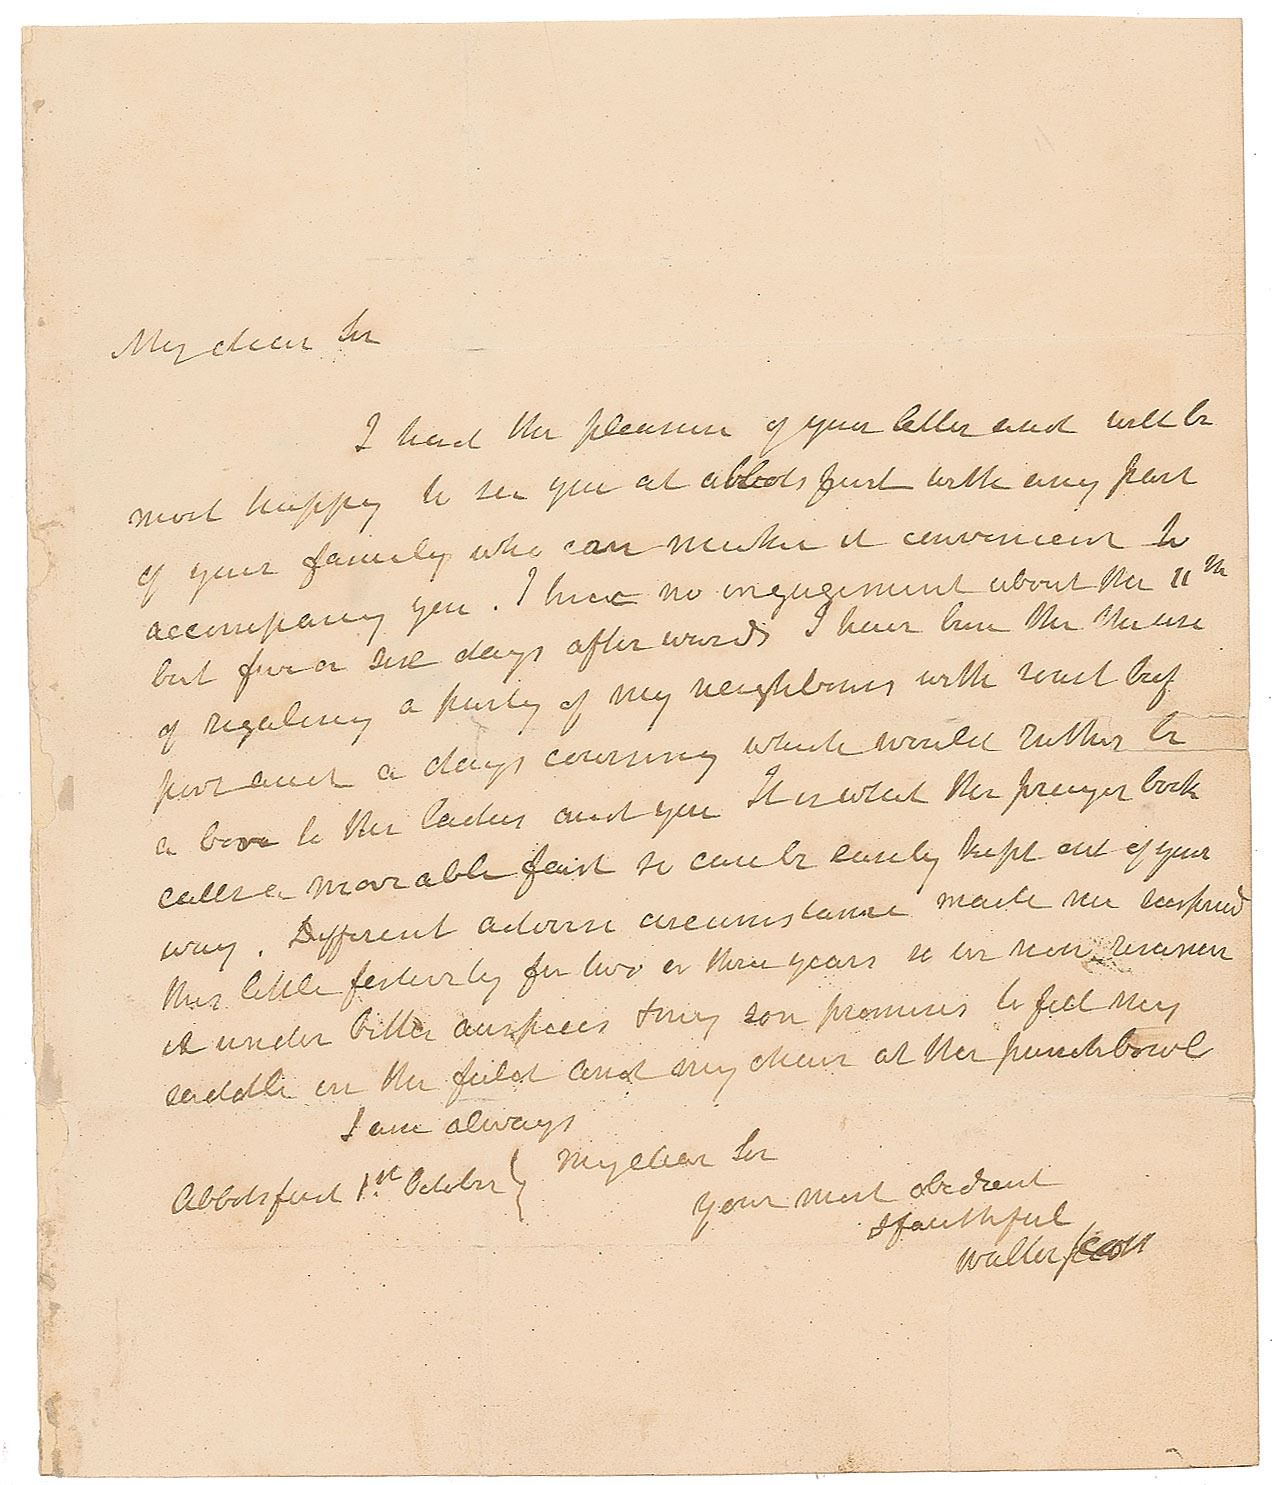 My dear Sir
I had the pleasure of your letter and will be
most happy to see you at abbotsford with any part
of your family who can make it convenient to
accompany you. I have no engagement about the 11th
but five or six days afterwards I have been the
of regaling a party of my neighbours with roast beef
and a days coursing which would rather be
a bore to the ladies and you It is what the prayer book
calls a moveable feast so can be easily kept out of your
way. Different adverse circumstance made me suspend
this little festivity for two or three years so we now
it under better auspices & my son promises to fill my
saddle in the field and my chair at the punchbowl
I am always
My dear Sir
Abbotsford 1st October }
your most obedient
& faithful
Walter Scott